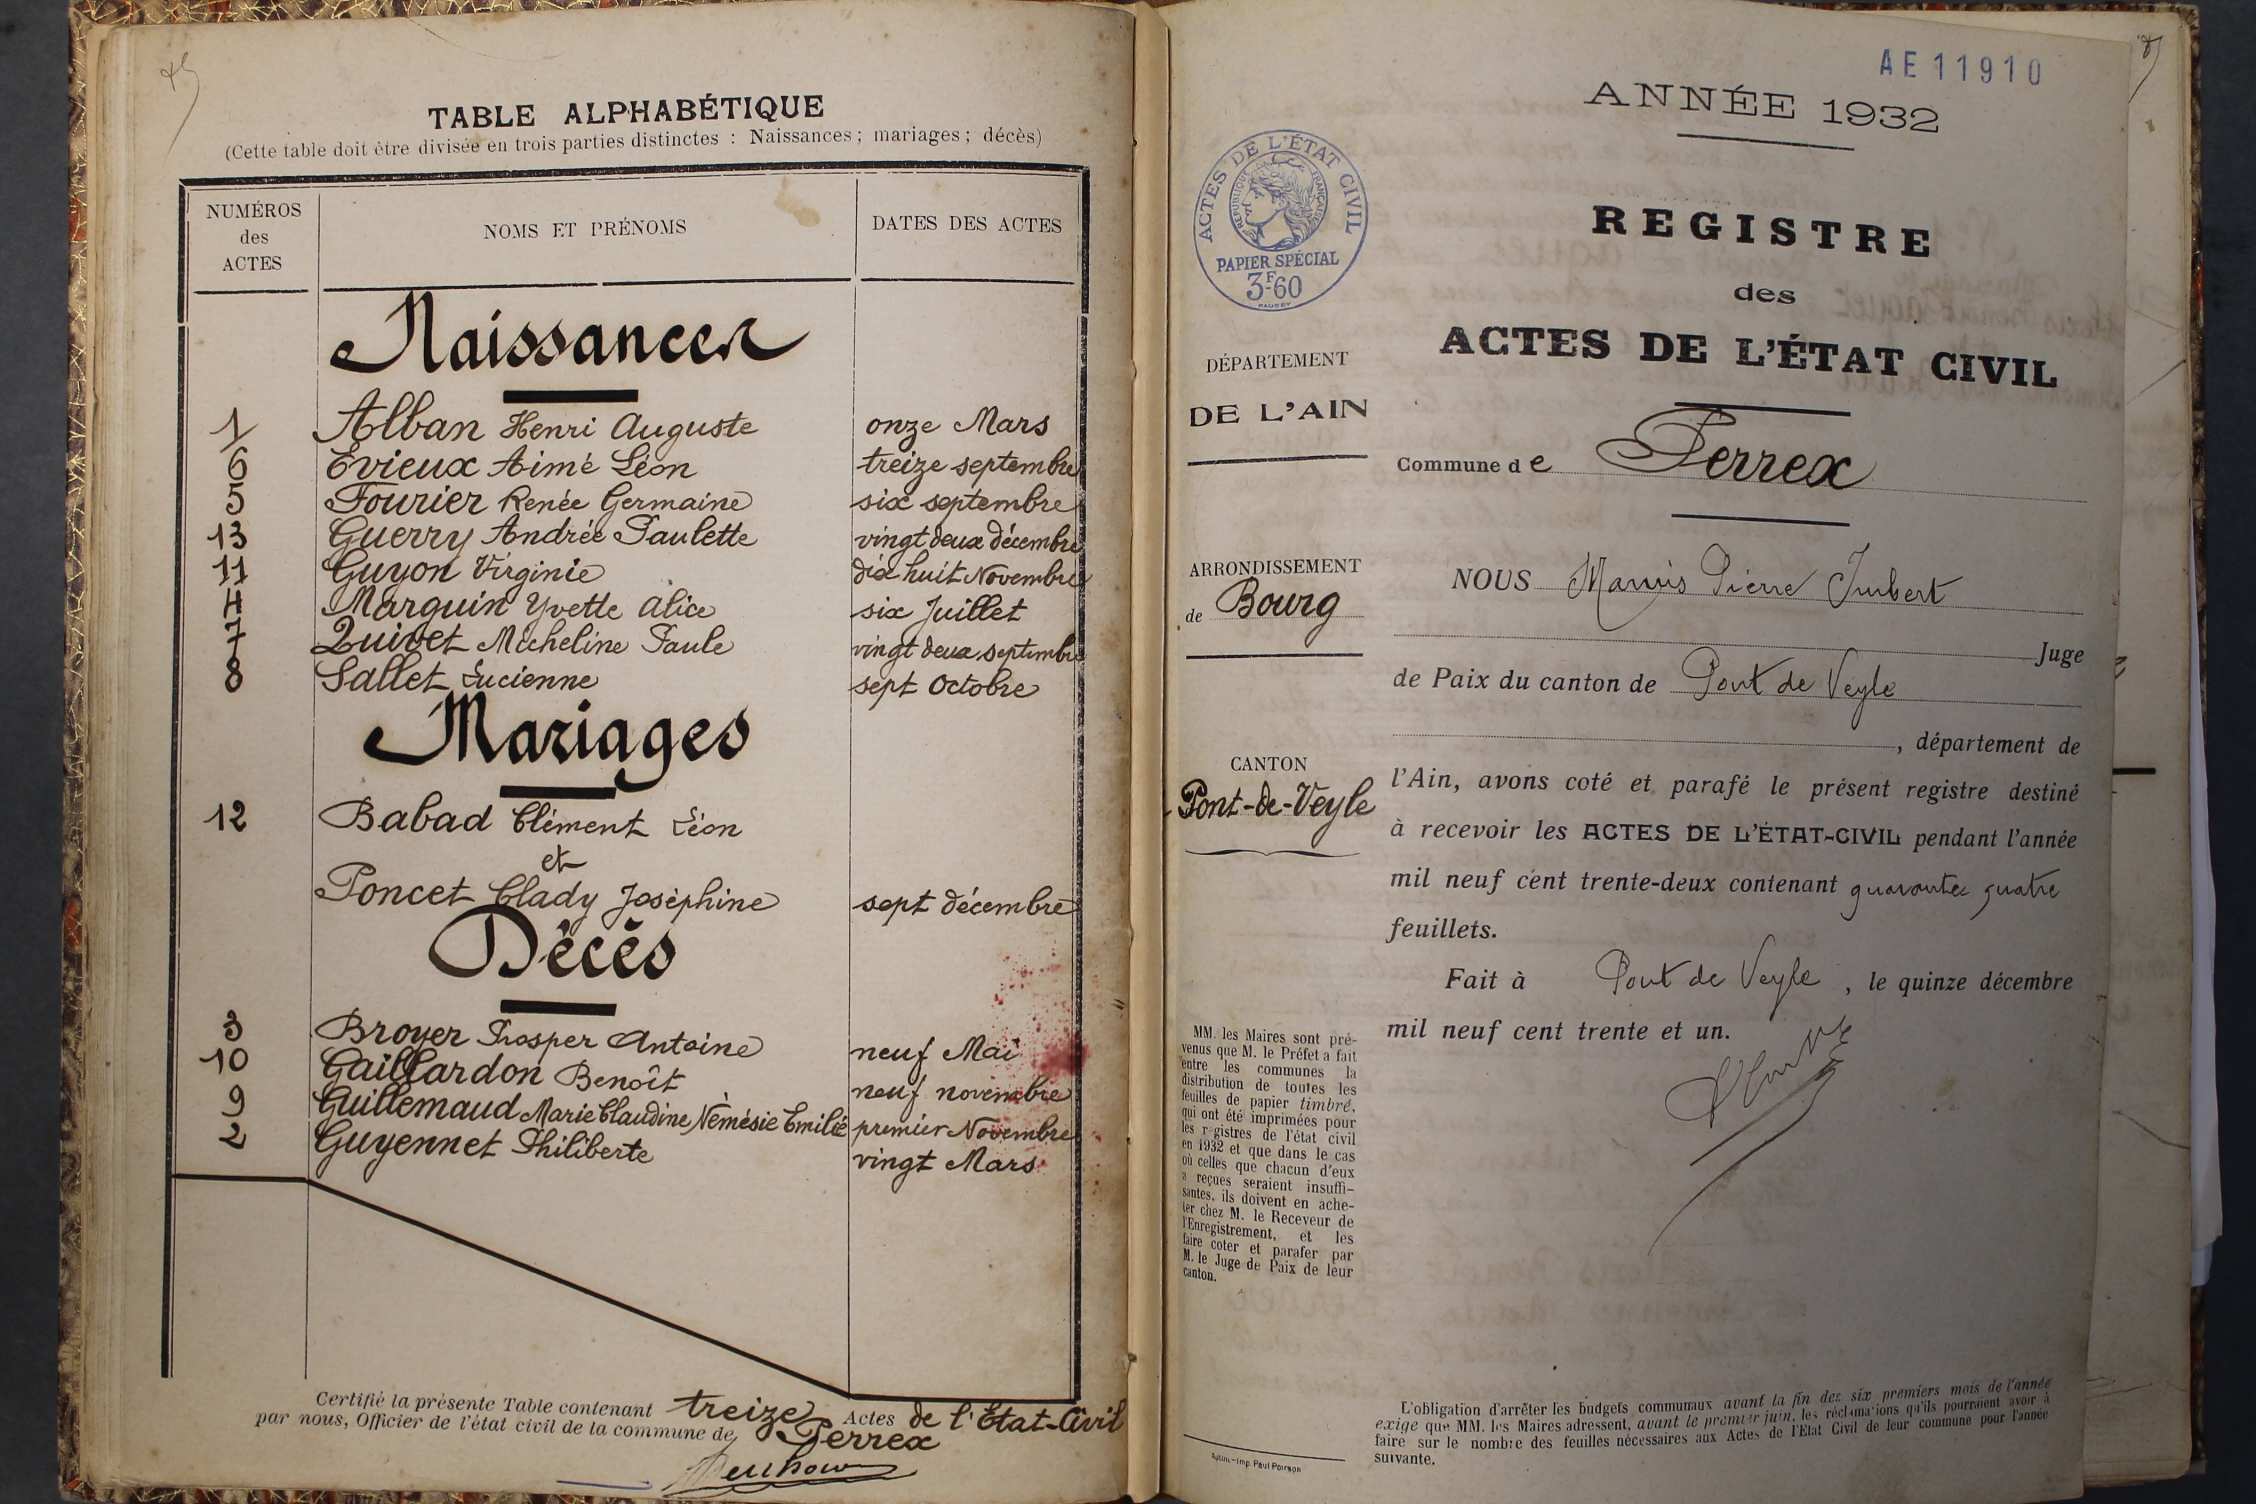 TABLE ALPHABÉTIQUE
(Cette table doit être divisée en trois parties distinctes : Naissances ; mariages ; décès)
NUMÉROS des ACTES NOMS ET PRÉNOMS DATES DES ACTES
Naissances
1 Alban Henri Auguste onze Mars
6 Evieux Aimé Léon treize septembre
5 Fourier Renée Germaine six septembre
13 Guerry Andrée Paulette vingt deux décembre
11 Guyon Virginie dix huit Novembre
4 Marguin Yvette Alice six Juillet
7 Quivet Micheline Paule vingt deux septembre
8 Sallet Lucienne sept Octobre
Mariages
12 Babad Clément Léon
et
Poncet Clady Joséphine sept décembre
Décès
3 Broyer Prosper Antoine neuf Mai
10 Gaillardon Benoît neuf novembre
9 Guillemaud Marie Claudine Némésie Emilie premier Novembre
2 Guyennet Philiberte vingt Mars
Certifié la présente Table contenant treize Actes de l'État-Civil
par nous, Officier de l'état civil de la commune de Perrex
AE 11910
ANNÉE 1932
ACTES DE L'ÉTAT CIVIL
RÉPUBLIQUE FRANÇAISE
PAPIER SPÉCIAL
3F60
REGISTRE
des
ACTES DE L'ÉTAT CIVIL
DÉPARTEMENT
DE L'AIN
Commune de Perrex
ARRONDISSEMENT
de Bourg
CANTON
Pont-de-Veyle
NOUS Marius Pierre Imbert
Juge
de Paix du canton de Pont de Veyle
, département de
l'Ain, avons coté et parafé le présent registre destiné
à recevoir les ACTES DE L'ÉTAT-CIVIL pendant l'année
mil neuf cent trente-deux contenant quarante quatre
feuillets.
Fait à Pont de Veyle, le quinze décembre
mil neuf cent trente et un.
MM. les Maires sont pré-
venus que M. le Préfet a fait
entre les communes la
distribution de toutes les
feuilles de papier timbré,
qui ont été imprimées pour
les registres de l'état civil
en 1932 et que dans le cas
où celles que chacun d'eux
a reçues seraient insuffi-
santes, ils doivent en ache-
ter chez M. le Receveur de
l'Enregistrement, et les
faire coter et parafer par
M. le Juge de Paix de leur
canton.
Autun.-Imp. Paul Poirson
L'obligation d'arrêter les budgets communaux avant la fin des six premiers mois de l'année
exige que MM. les Maires adressent, avant le premier juin, les réclamations qu'ils pourraient avoir à
faire sur le nombre des feuilles nécessaires aux Actes de l'Etat Civil de leur commune pour l'année
suivante.